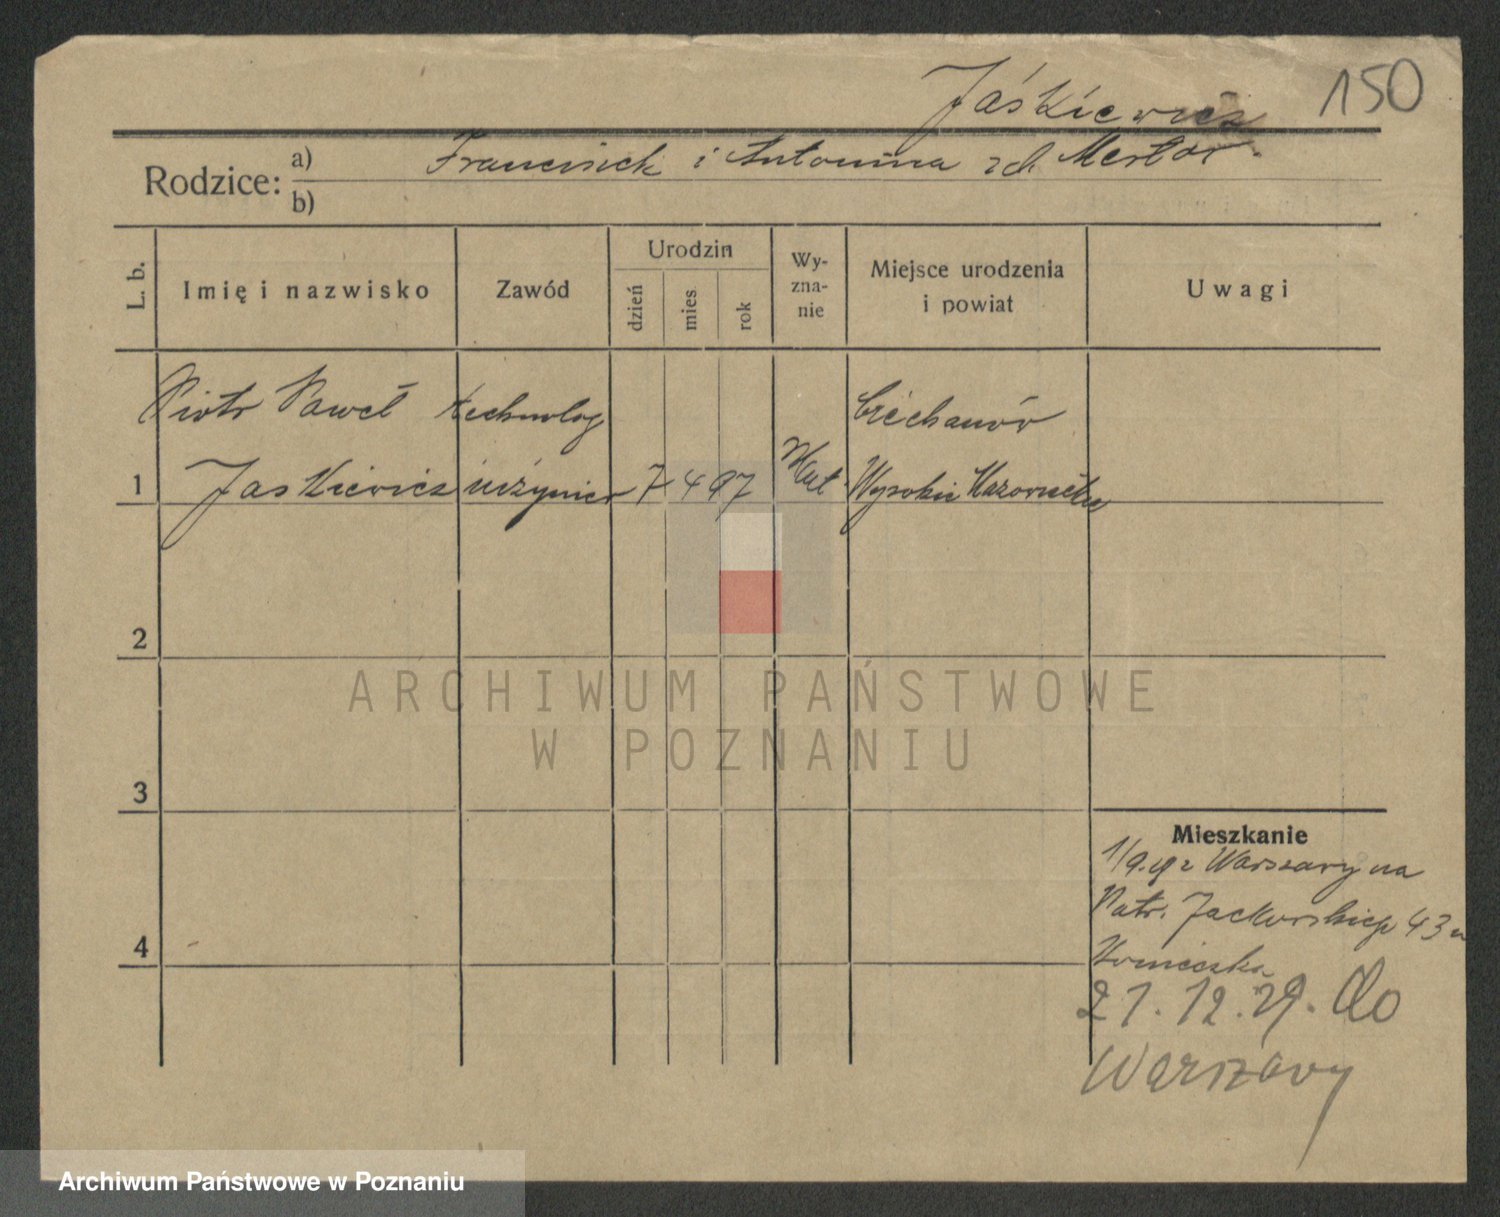 Jaśkiewicz 150
Rodzice: a) Franciszek i Antonina zd.
b)
L. b. Imię i nazwisko Zawód Urodzin dzień mies rok Wy-zna-nie Miejsce urodzenia i powiat Uwagi
Piotr Paweł technolog Ciechanów
1 Jaskiewicz inżynier 7 4 97 Wysokie Mazowieckie
2
ARCHIWUM PAŃSTWOWE
W POZNANIU
3
Mieszkanie
z Warszawy na
Patr. Jackowskiego 43
4
21.12.29. do
Warszawy
Archiwum Państwowe w Poznaniu